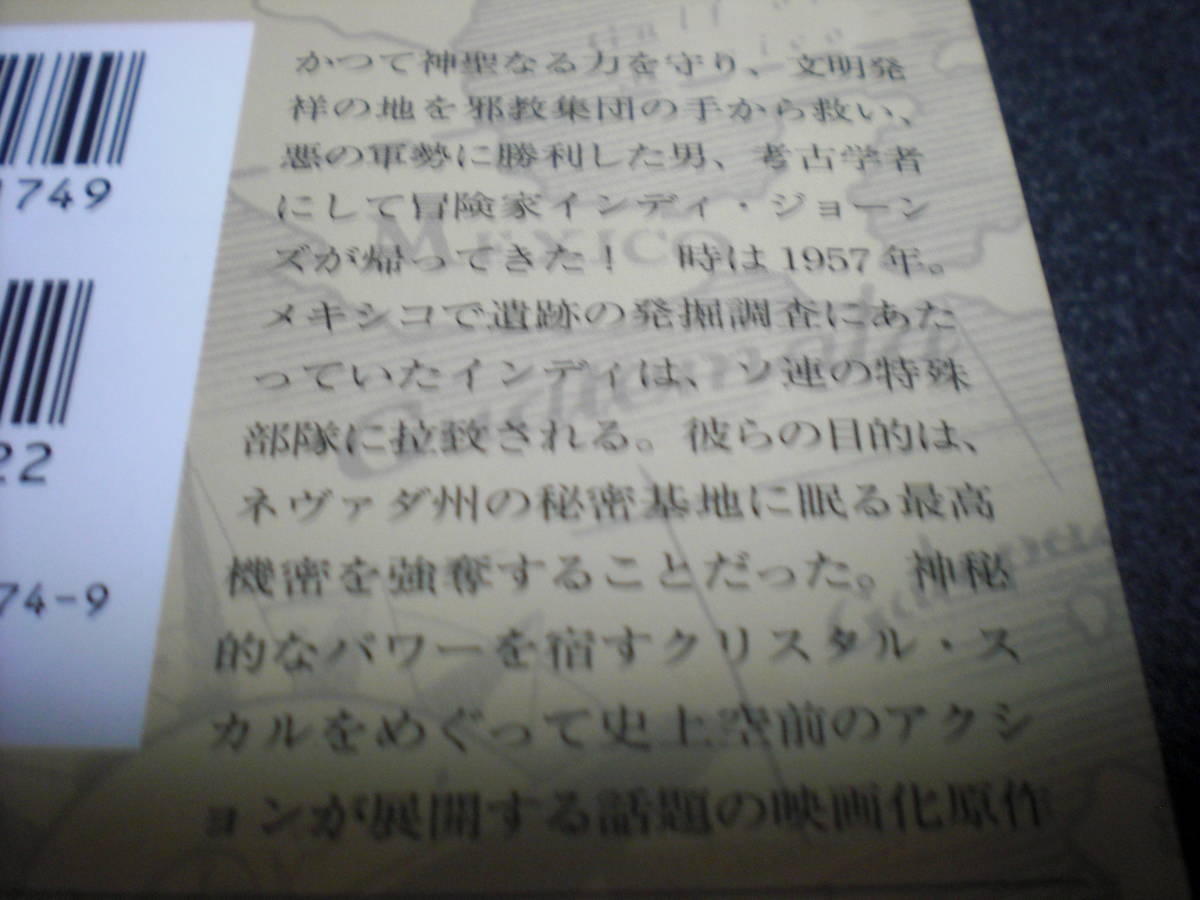 Gulf of
Mexico
1749
22
74-9
かつて神聖なる力を守り、文明発
祥の地を邪教集団の手から救い、
悪の軍勢に勝利した男、考古学者
にして冒険家インディ・ジョーン
ズが帰ってきた！　時は1957年。
メキシコで遺跡の発掘調査にあた
っていたインディは、ソ連の特殊
部隊に拉致される。彼らの目的は、
ネヴァダ州の秘密基地に眠る最高
機密を強奪することだった。神秘
的なパワーを宿すクリスタル・ス
カルをめぐって史上空前のアクシ
ョンが展開する話題の映画化原作
MEXICO
Guatemala